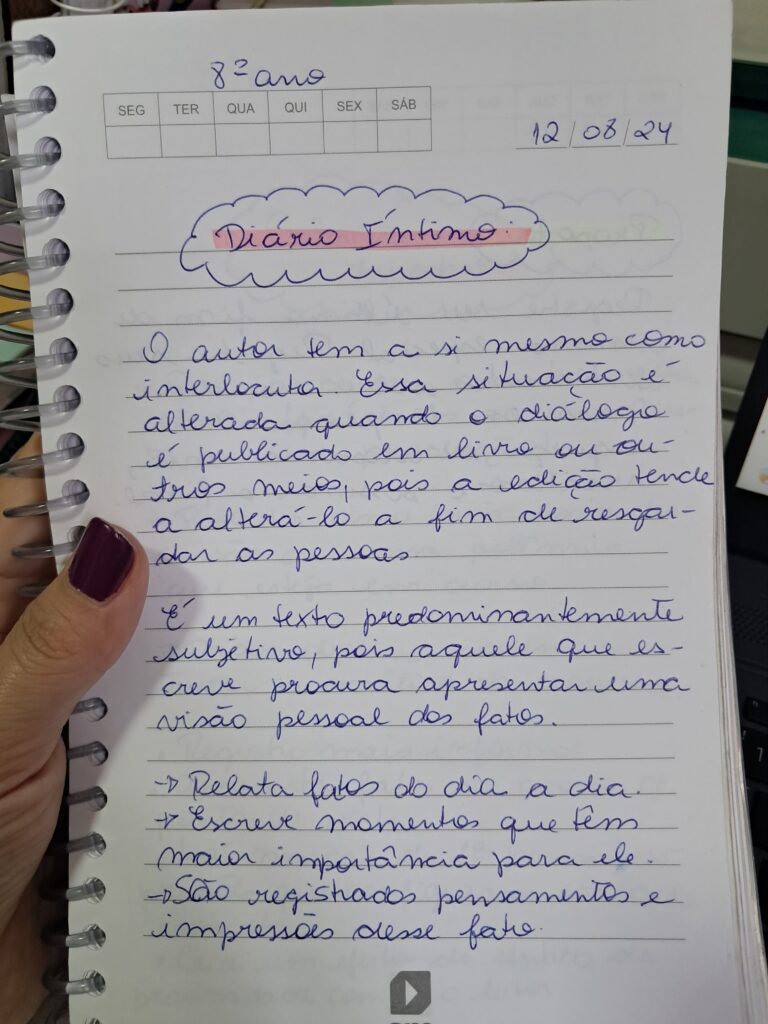 8º ano
SEG TER QUA QUI SEX SÁB
12/08/24
Diário Íntimo:
O autor tem a si mesmo como
interlocutor. Essa situação é
alterada quando o diálogo
é publicado em livro ou ou-
tros meios, pois a edição tende
a alterá-lo a fim de resguar-
dar as pessoas
É um texto predominantemente
subjetivo, pois aquele que es-
creve procura apresentar uma
visão pessoal dos fatos.
→ Relata fatos do dia a dia.
→ Escreve momentos que têm
maior importância para ele.
→ São registrados pensamentos e
impressões desse fato.